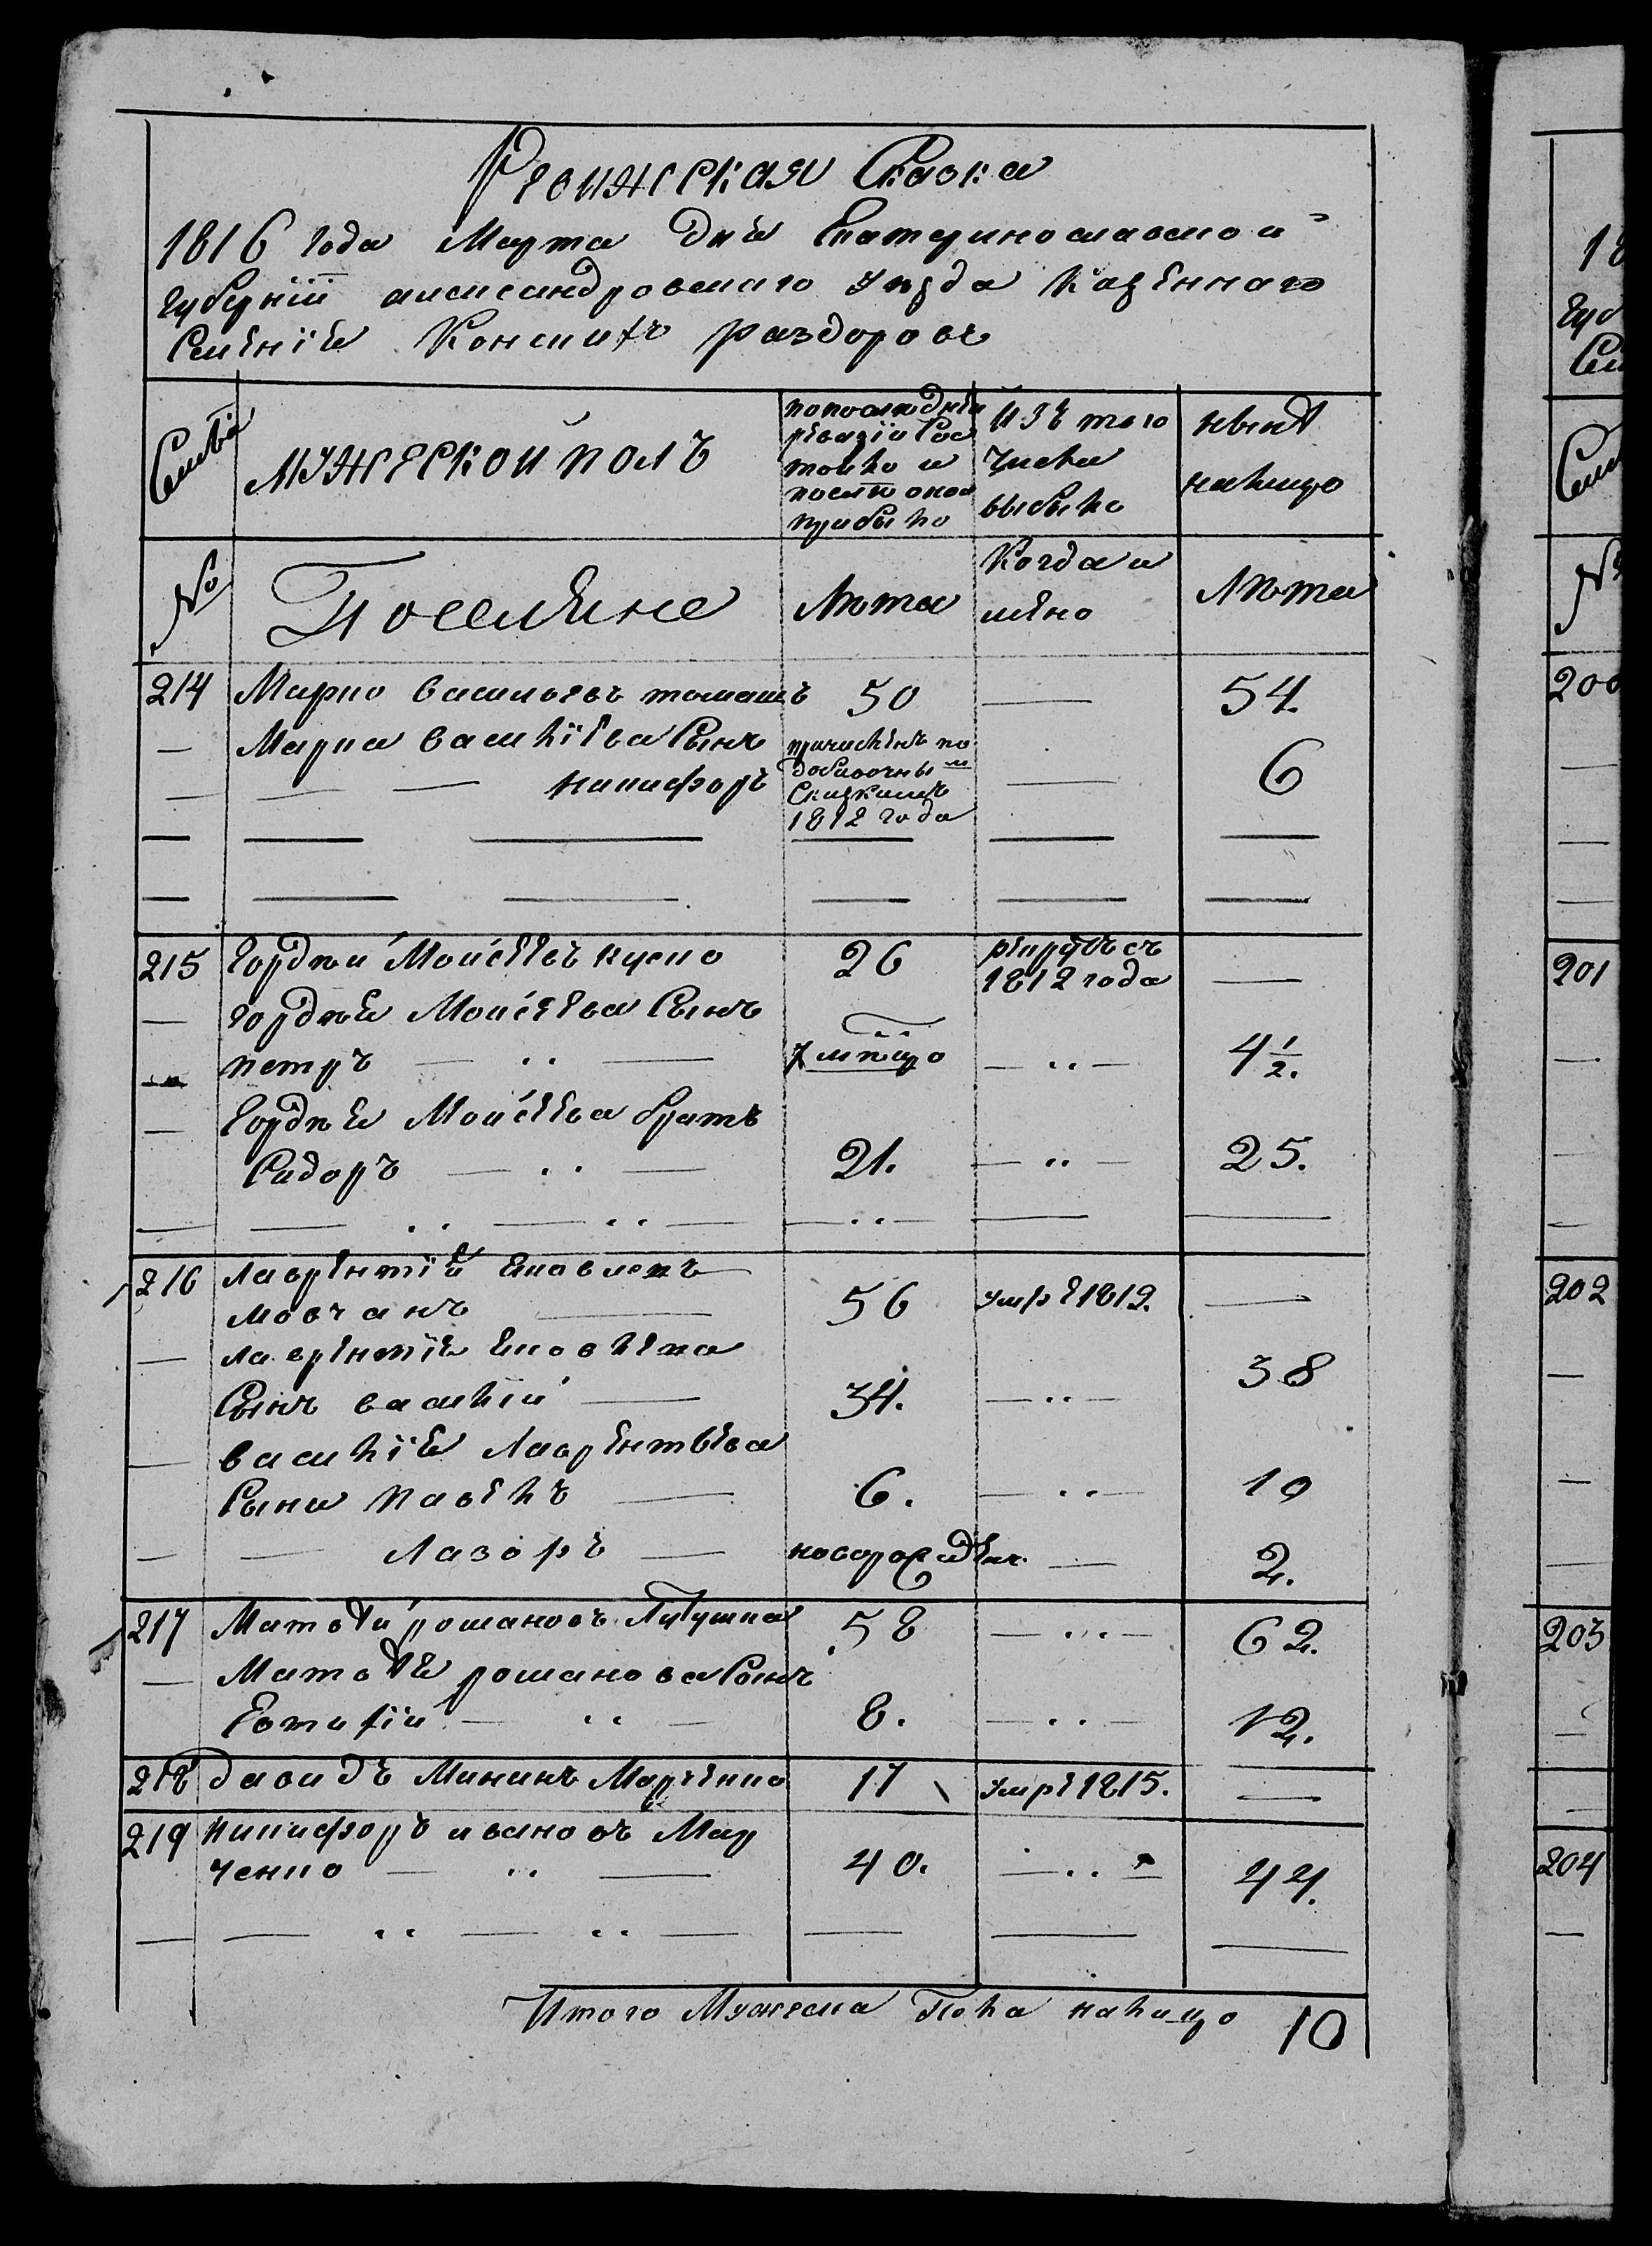 Ревижская Сказка
1816 года Марта дня Екатеринославской
губернии александровского уезда казенного
Селения Конских раздоров
Семьи
мужеской полъ
по последней
ревизии Со
тояло и
после оной
прибыло
Изъ того
числа
выбыло
ныне
налицо
№
Поселяне
Лета
Когда и
менно
Лета
214 Марко Васильевъ томашъ 50 — 54.
— Марка Василіева Сынъ
— никифоръ — 6
причисленъ по
добавочны м
Сказкамъ
1812 года
215 Гордѣй Моисеевъ куско 26 рекрутъ съ 1812 года —
— Гордѣя Моисеева Сынъ
петръ — " — — " — 4 1/2.
— Гордѣя Моисеева братъ
Сидоръ — " — 21. — " — 25.
216 Лаврентій Яковлевъ
Мовчанъ — 56 умре 1812. —
— Лаврентія Яковлева
Сынъ василій — 34. — " — 38
— василія Лаврентьева
Сыны Павелъ — 6. — " — 10
— — Лазоръ — новорожденъ — 2.
217 Матвей романовъ 58 — " — 62.
— Матвея романова Сынъ
Евтифій — " — 8. — " — 12.
218 давидъ Мининъ Марченко 17 умре 1815. —
219 никифоръ ивановъ Мар
ченко — " — 40. — " — 44.
Итого Мужеска Пола налицо 10
18
губ
Сел
№
200
201
202
203
204